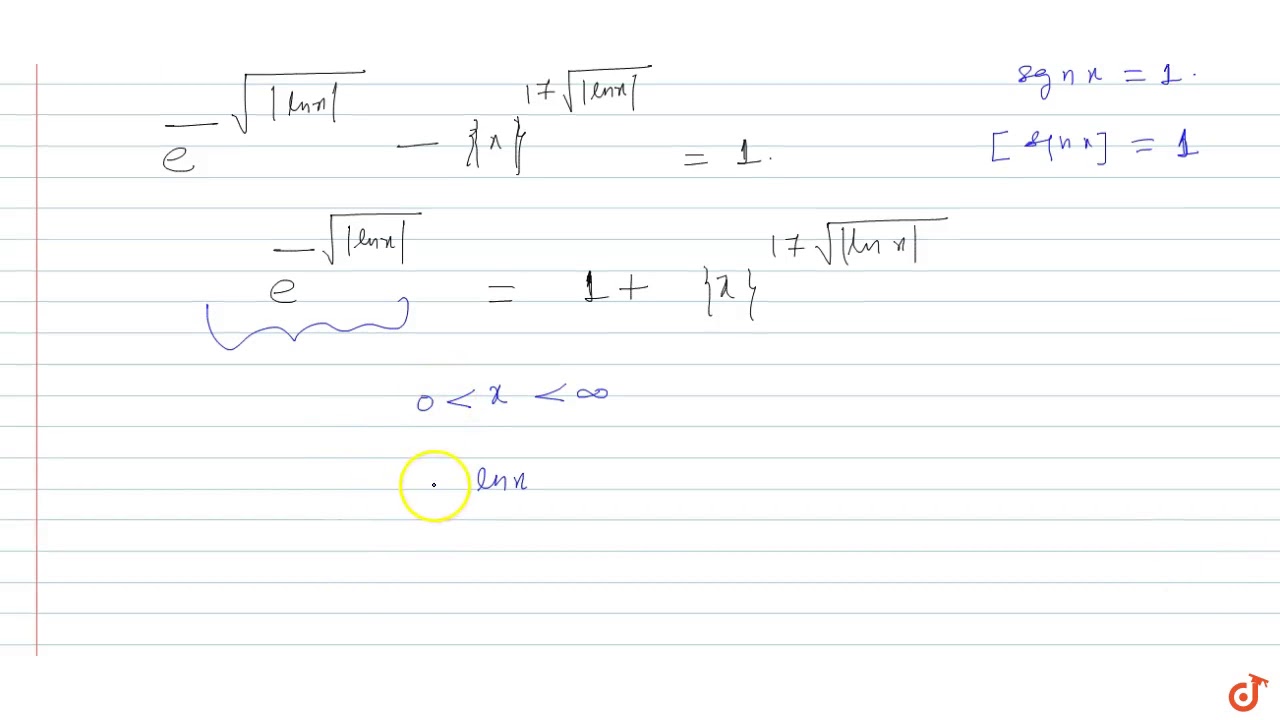 e^{-√|ln x|} - {x}^{17√|ln x|} = 1.
sgn x = 1.
[sgn x] = 1
e^{-√|ln x|} = 1 + {x}^{17√|ln x|}
0 < x < ∞
ln x